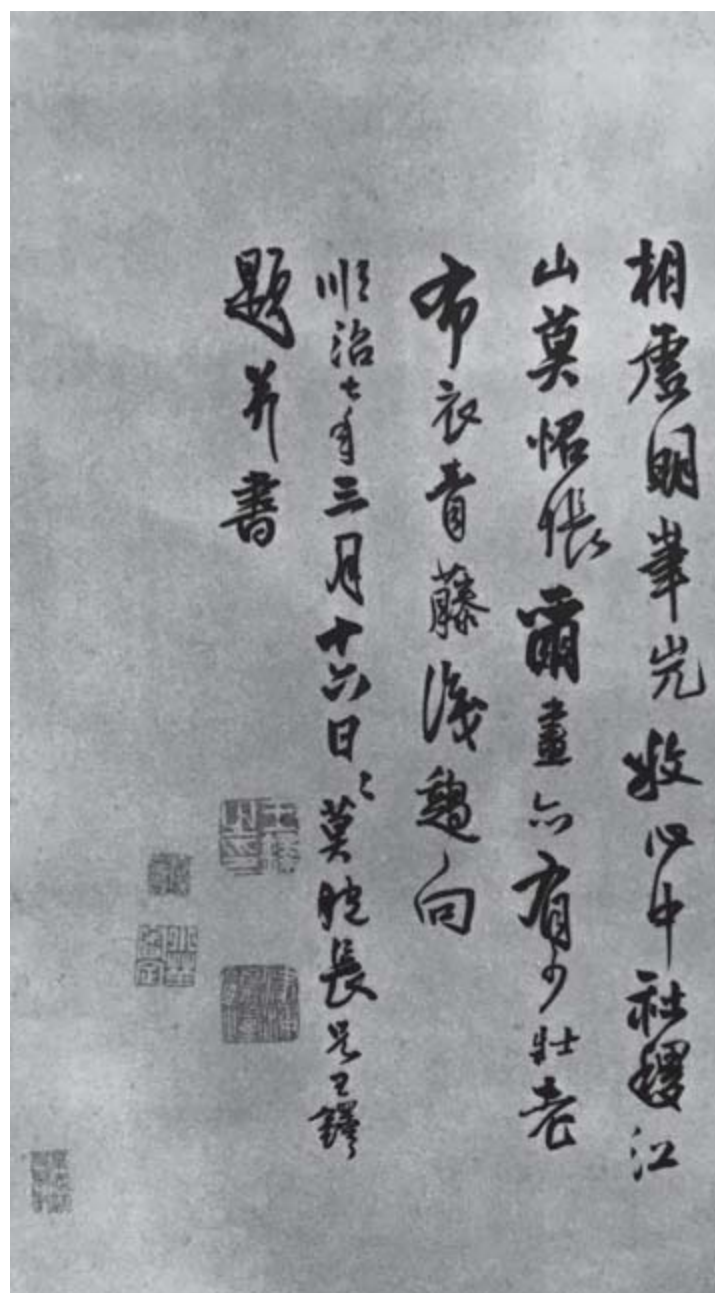 相虛明峯岏數必中社稷江
山莫怊悵爾畫亦有少壯老
布衣青藤淺趨向
順治七年三月十六日莫晚長兄王鐸
題并書